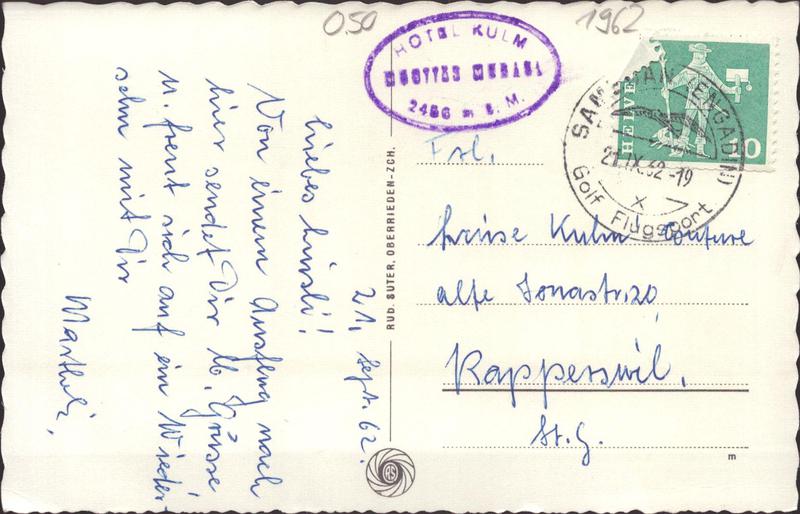 050
1962
HOTEL KULM
MUOTTAS MURAGL
2456 m ü. M.
HELVETIA
10
SAMEDAN (ENGADIN)
21.IX.62-19
X
Golf Flugsport
21. Sept. 62.
Liebes Luisli!
Von einem Ausflug nach
hier sendet Dir lb. Grüsse
u. freut sich auf ein Wieder-
sehn mit Dir
Martheli.
RUD. SUTER, OBERRIEDEN-ZCH.
RS
Frl.
Luise Kulm Couture
alte Jonastr. 20
Rapperswil.
St. G.
m